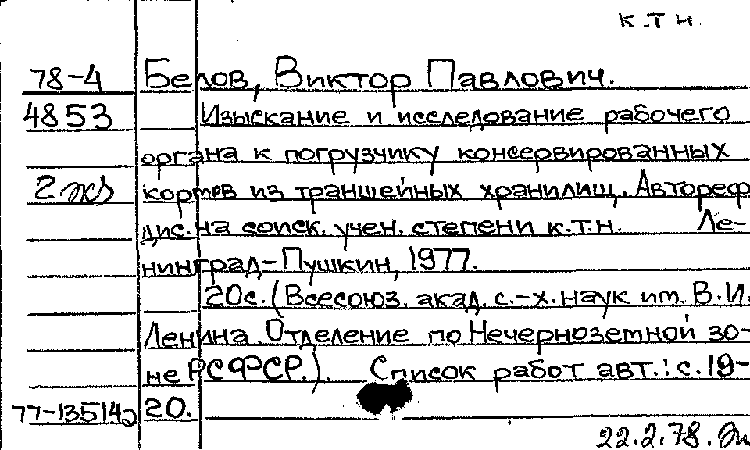 к.т.н.
78-4 Белов, Виктор Павлович.
4853 Изыскание и исследование рабочего
органа к погрузчику консервированных
2 экз кормов из траншейных хранилищ. Автореф
дис. на соиск. учен. степени к.т.н. Ле-
нинград-Пушкин, 1977.
20с. (Всесоюз. акад. с.-х. наук им. В.И.
Ленина. Отделение по Нечерноземной зо-
не РСФСР.). Список работ авт.: с. 19-
77-13514а 20.
22.2.78.